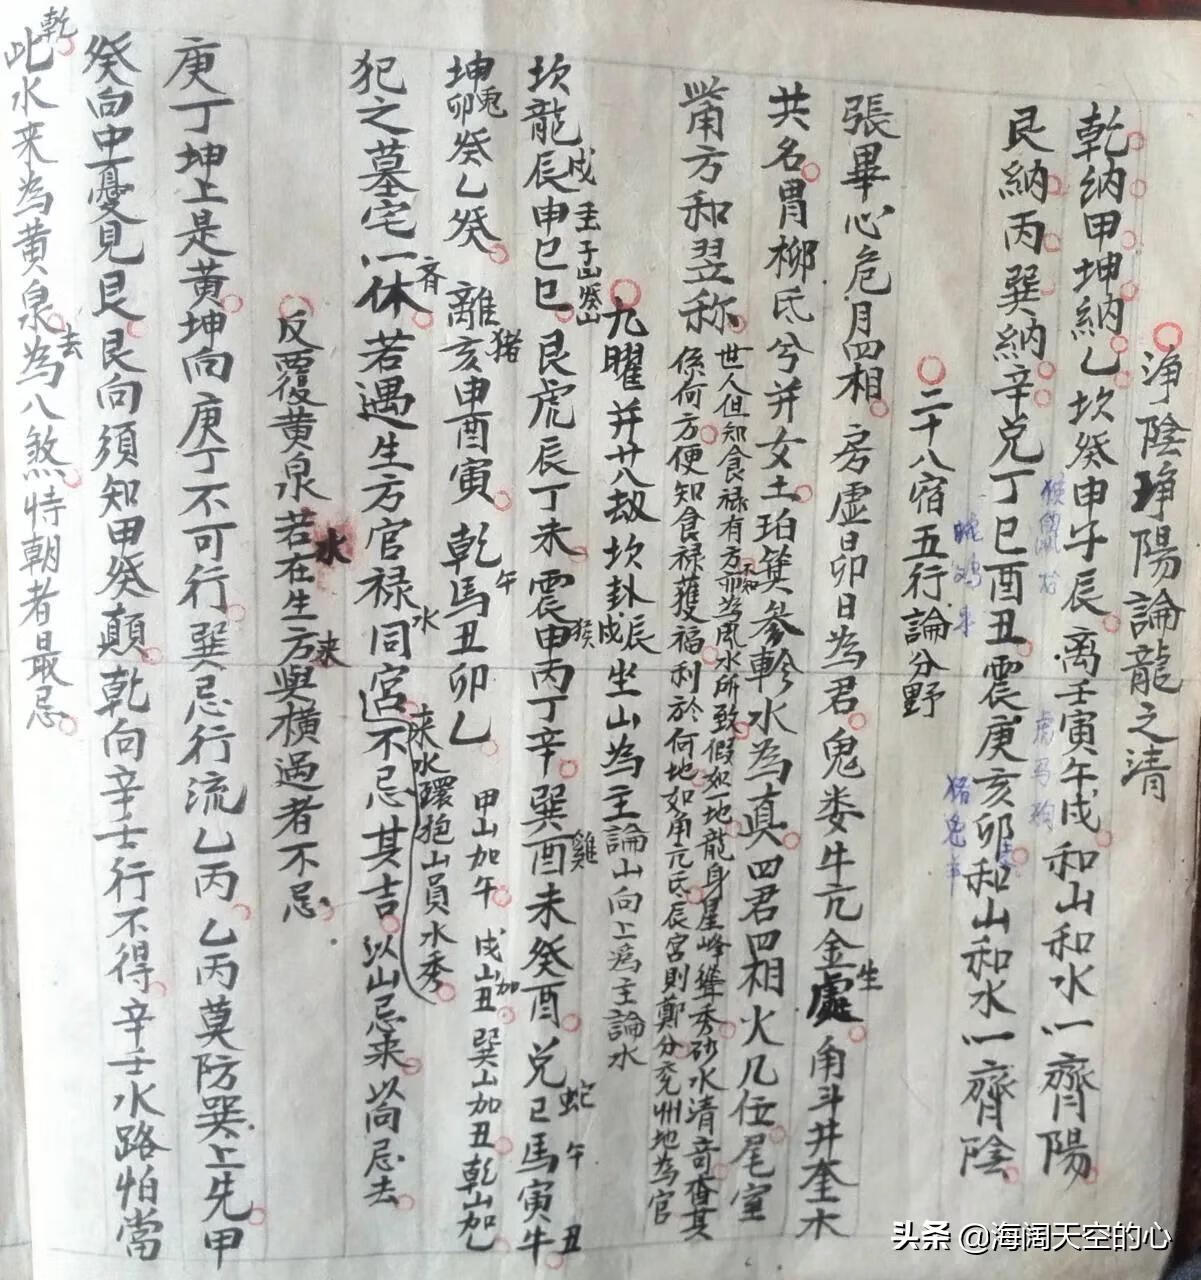 淨陰琤陽論龍之清
乾納甲坤納乙坎癸申子辰离壬寅午戌和山和水一齊陽
猴鼠
虎马狗
艮納丙巽納辛兑丁巳酉丑震庚亥卯和山和水一齊陰
蛇鸡牛
猪兔羊
二十八宿五行論分野
張畢心危月四相房虚日卯日為君鬼娄牛亢金處角斗井奎木
生
共名胃柳氐兮并女土珀箕參軫水為真四君四相火几位尾室
觜方和翌称
世人但知食禄有方而為風水所致假如一地龍身星峰聳秀砂水清竒查其
係何方便知食禄獲福利於何地如角亢氐辰宮則鄭分兖州地為官
九曜并廿八劫坎卦戌辰坐山為主論山向上為主論水
坎龍辰申巳巳艮虎辰丁未震申丙丁辛巽酉未癸酉兑巳馬寅牛
戌壬子山癸山
猴
雞
蛇
午
丑
坤卯癸乙癸離亥申酉寅乾馬丑卯乙
兎
猪
午
甲山加午戌山加丑巽山加丑乾山加
犯之墓宅一休若遇生方官禄同宮迊不忌其吉以山忌来以向忌去
齐
水
来水環抱山員水秀
反覆黄泉若在生方與横過者不忌
水
来
庚丁坤上是黄坤向庚丁不可行巽忌行流乙丙乙丙莫防巽上先甲
癸向中憂見艮艮向須知甲癸顛乾向辛壬行不得辛壬水路怕當
乾
此水来為黄泉去為八煞特朝者最忌
头条 @海阔天空的心